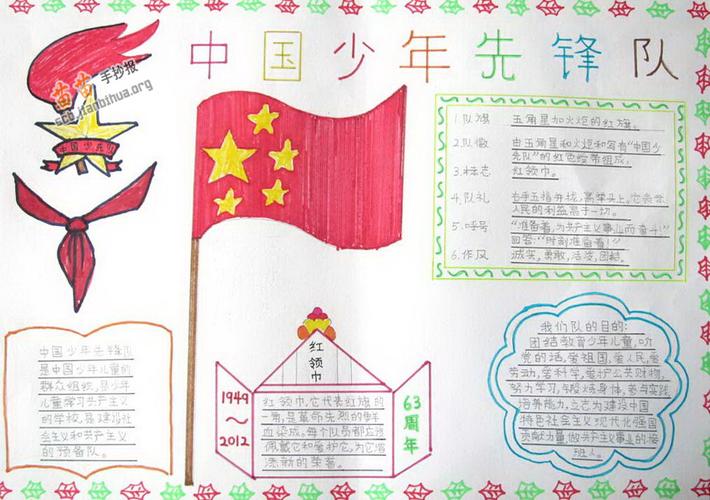 中国少年先锋队
苗苗手抄报
scb.jianbihua.org
中国少先队
1.队旗 五角星加火炬的红旗。
2.队徽 由五角星和火炬和写有"中国少
先队"的红色绶带组成。
3.标志 红领巾。
4.队礼 右手五指并拢,高举头上。它表示
人民的利益高于一切。
5.呼号 "准备着,为共产主义事业而奋斗!"
回答:"时刻准备着!"
6.作风 诚实,勇敢,活泼,团结。
中国少年先锋队
是中国少年儿童的
群众组织,是少年
儿童学习共产主义
的学校,是建设社
会主义和共产主义
的预备队。
红领巾
1949
~
2012
红领巾,它代表红旗的
一角,是革命先烈的鲜
血染成。每个队员都应该
佩戴它和爱护它,为它增
添新的荣誉。
63周年
我们队的目的:
团结教育少年儿童,听
党的话,爱祖国,爱人民,爱
劳动,爱科学,爱护公共财物,
努力学习,锻炼身体,参与实践
培养能力,立志为建设中国
特色社会主义现代化强国
贡献力量,做共产主义事业的接
班人。